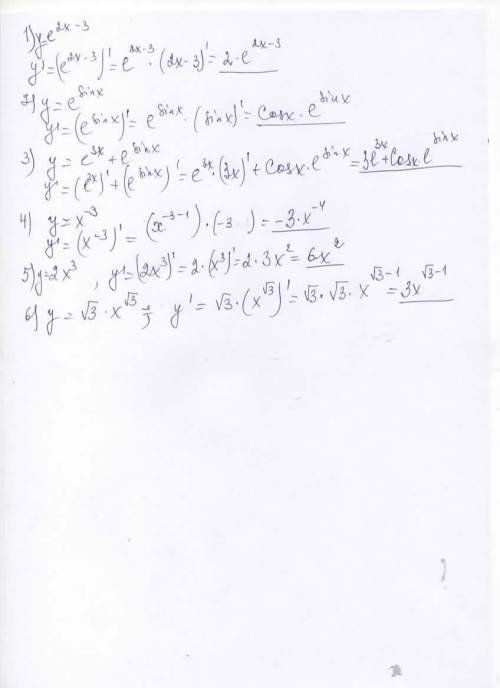 1) y = e^{2x-3}
y' = (e^{2x-3})' = e^{2x-3} · (2x-3)' = 2 · e^{2x-3}
2) y = e^{sin x}
y' = (e^{sin x})' = e^{sin x} · (sin x)' = cos x · e^{sin x}
3) y = e^{3x} + e^{sin x}
y' = (e^{3x})' + (e^{sin x})' = e^{3x} · (3x)' + cos x · e^{sin x} = 3e^{3x} + cos x e^{sin x}
4) y = x^{-3}
y' = (x^{-3})' = (x^{-3-1}) · (-3) = -3 · x^{-4}
5) y = 2x^3, y' = (2x^3)' = 2 · (x^3)' = 2 · 3x^2 = 6x^2
6) y = √3 · x^{√3} ; y' = √3 · (x^{√3})' = √3 · √3 · x^{√3-1} = 3x^{√3-1}